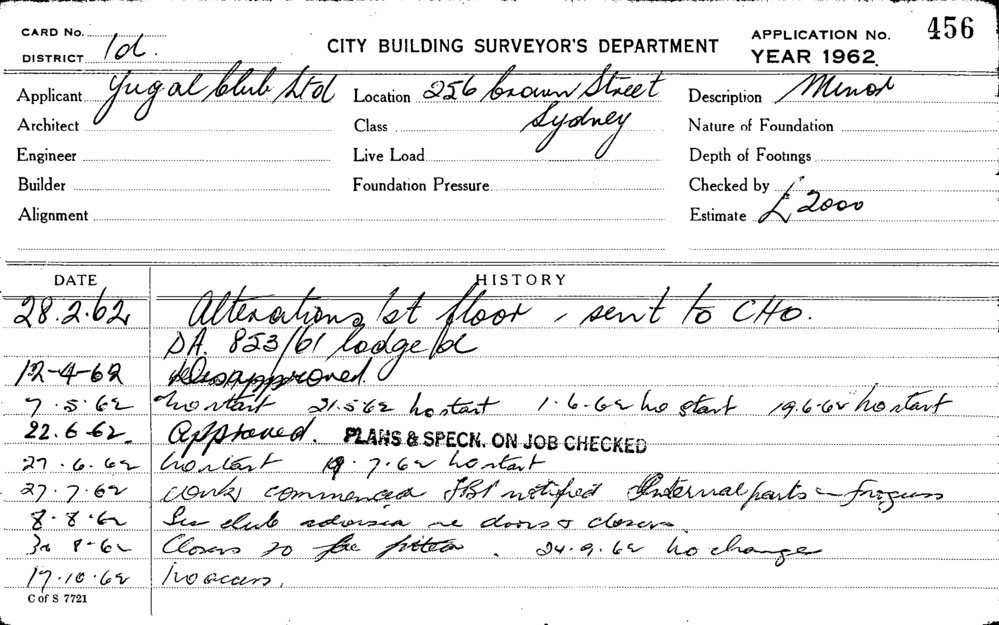 CARD No.
CITY BUILDING SURVEYOR'S DEPARTMENT
APPLICATION No. 456
DISTRICT 1d.
YEAR 1962
Applicant Yugal Club Ltd Location 256 Crown Street Description Minor
Architect Class Sydney Nature of Foundation
Engineer Live Load Depth of Footings
Builder Foundation Pressure Checked by
Alignment Estimate £2000
DATE HISTORY
28.2.62 Alterations 1st floor, sent to CHO.
DA. 853/61 lodge/d
12-4-62 Disapproved.
7.5.62 no start 21.5.62 no start 1.6.62 no start 19.6.62 no start
22.6.62. Approved. PLANS & SPECN. ON JOB CHECKED
27.6.62 no start 19.7.62 no start
27.7.62 work commenced notified Internal parts in progress
8.8.62 See club re doors & closers.
8-62 Closers to be fitted. 24.9.62 no change
17.10.62 no access.
C of S 7721